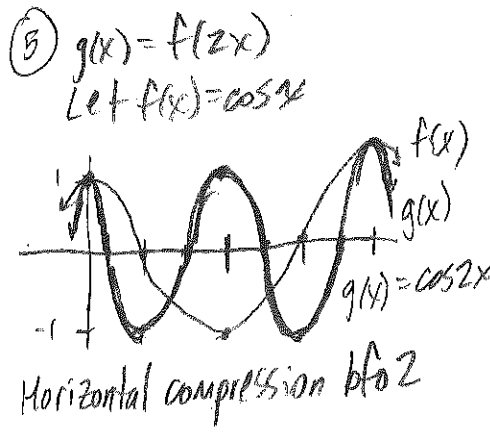 5 g(x) = f(2x)
Let f(x) = cos x
1
f(x)
g(x)
g(x) = cos 2x
-1
Horizontal compression bfo 2